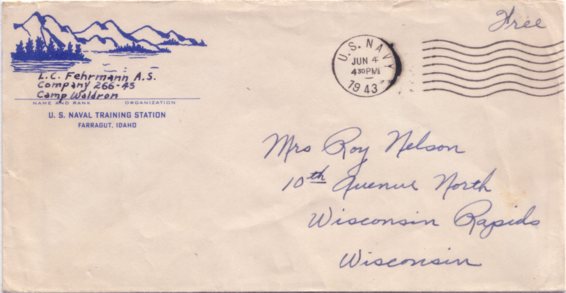 Free
L.C. Fehrmann A.S.
Company 266-43
Camp Waldron
NAME AND RANK ORGANIZATION
U. S. NAVAL TRAINING STATION
FARRAGUT, IDAHO
U.S. NAVY
JUN 4
4 30 PM
1943
Mrs Roy Nelson
10th Avenue North
Wisconsin Rapids
Wisconsin